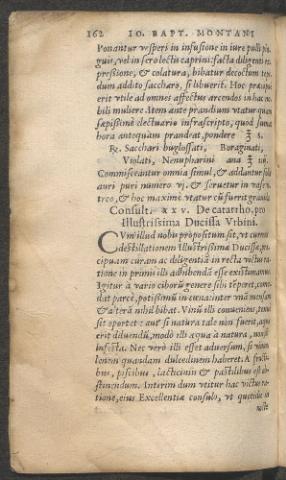 162 IO. BAPT. MONTANI
Ponantur vesperi in infusione in iure pulli pin
guis, vel in sero lactis caprini: facta diligenti ex
pressione, & colatura, bibatur decoctum ex
dum addito saccharo, si libuerit. Hoc præcipuè
erit vtile ad omnes affectus arcendos in hac no
bili muliere. Item ante prandium vtatur quam
sæpissimè electuario infrascripto, quod sumat
hora antequàm prandeat, pondere ℥ s.
℞. Sacchari buglossati, Boraginati,
Violati, Nenupharini ana ℥ iij.
Commisceantur omnia simul, & addantur folia
auri puri numero vj. & seruetur in vase vi
treo, & hoc maximè vtatur cū fuerit grauida.
Consult. xxv. De catarrho, pro
Illustrissima Ducissa Vrbini.
CVm illud nobis propositum sit, vt curemus
destillationem Illustrissimæ Ducissæ, præ
cipuam curam ac diligentiā in recta victus ra
tione in primis illi adhibendā esse existimamus.
Igitur à vario ciborū genere sibi tēperet, come
dat parcè, potissimū in cena, inter vnā mensam
& alterā nihil bibat. Vinū illi conueniens, tenue
sit oportet: aut si natura tale non fuerit, aqua
erit diluendū, modò illi aqua à natura, non sit
infesta. Nec verò illi esset aduersum, si vinum
lenem quandam dulcedinem haberet. A fructi
bus, piscibus, lacticinijs & pastillibus est ab
stinendum. Interim dum vtitur hac victus ra
tione, eius Excellentiæ consulo, vt quotidie in